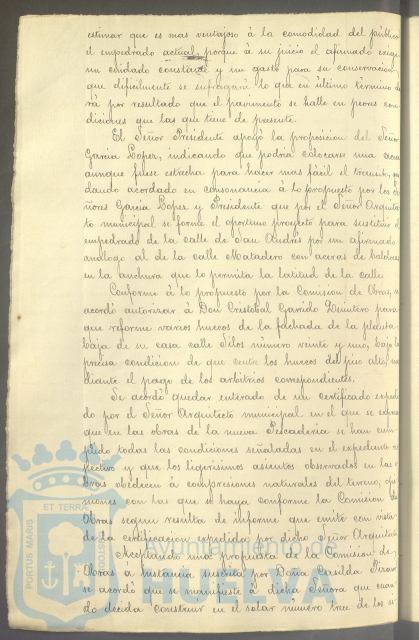 estimar que es mas ventajoso á la comodidad del público
el empedrado actual, porque á su juicio el afirmado exige
un cuidado constante y un gasto para su conservacion
que dificilmente se sufragará lo que en último término da-
rá por resultado que el pavimento se halle en peores con-
diciones que las que tiene de presente.
El Señor Presidente apoyó la proposicion del Señor
Garcia Lopez, indicando que podria colocarse una acera
aunque fuese estrecha para hacer mas fácil el transito, que-
dando acordado en consonancia á lo propuesto por los Se-
ñores Garcia Lopez y Presidente que por el Señor Arquitec-
to municipal se forme el oportuno proyecto para sustituir el
empedrado de la calle de San Andrés por un afirmado
análogo al de la calle Matadero con aceras de baldosas
en la anchura que lo permita la latitud de la calle.
Conforme á lo propuesto por la Comision de Obras, se
acordó autorizar á Don Cristobal Garrido Quintero para
que reforme varios huecos de la fachada de la planta
baja de su casa calle Silos número veinte y uno, bajo la
precisa condicion de que centre los huecos del piso alto, me-
diante el pago de los arbitrios correspondientes.
Se acordó quedar enterado de un certificado expedi-
do por el Señor Arquitecto municipal en el que se expresa
que en las obras de la nueva Pescaderia se han cum-
plido todas las condiciones señaladas en el expediente res-
pectivo y que los ligerisimos asientos observados en las o-
bras obedecen á compresiones naturales del terreno, opi-
niones con las que se haya conforme la Comision de
Obras segun resulta de informe que emite con vista
de la certificacion expedida por dicho Señor Arquitecto.
Aceptando una propuesta de la Comision de
Obras á instancia suscrita por Doña Casilda
se acordó que se manifieste á dicha Señora que cuan-
do decida construir en el solar número trece de los si-
PORTUS MARIS
ET TERRAE
CUSTODIA
Ayuntamiento de
HUELVA